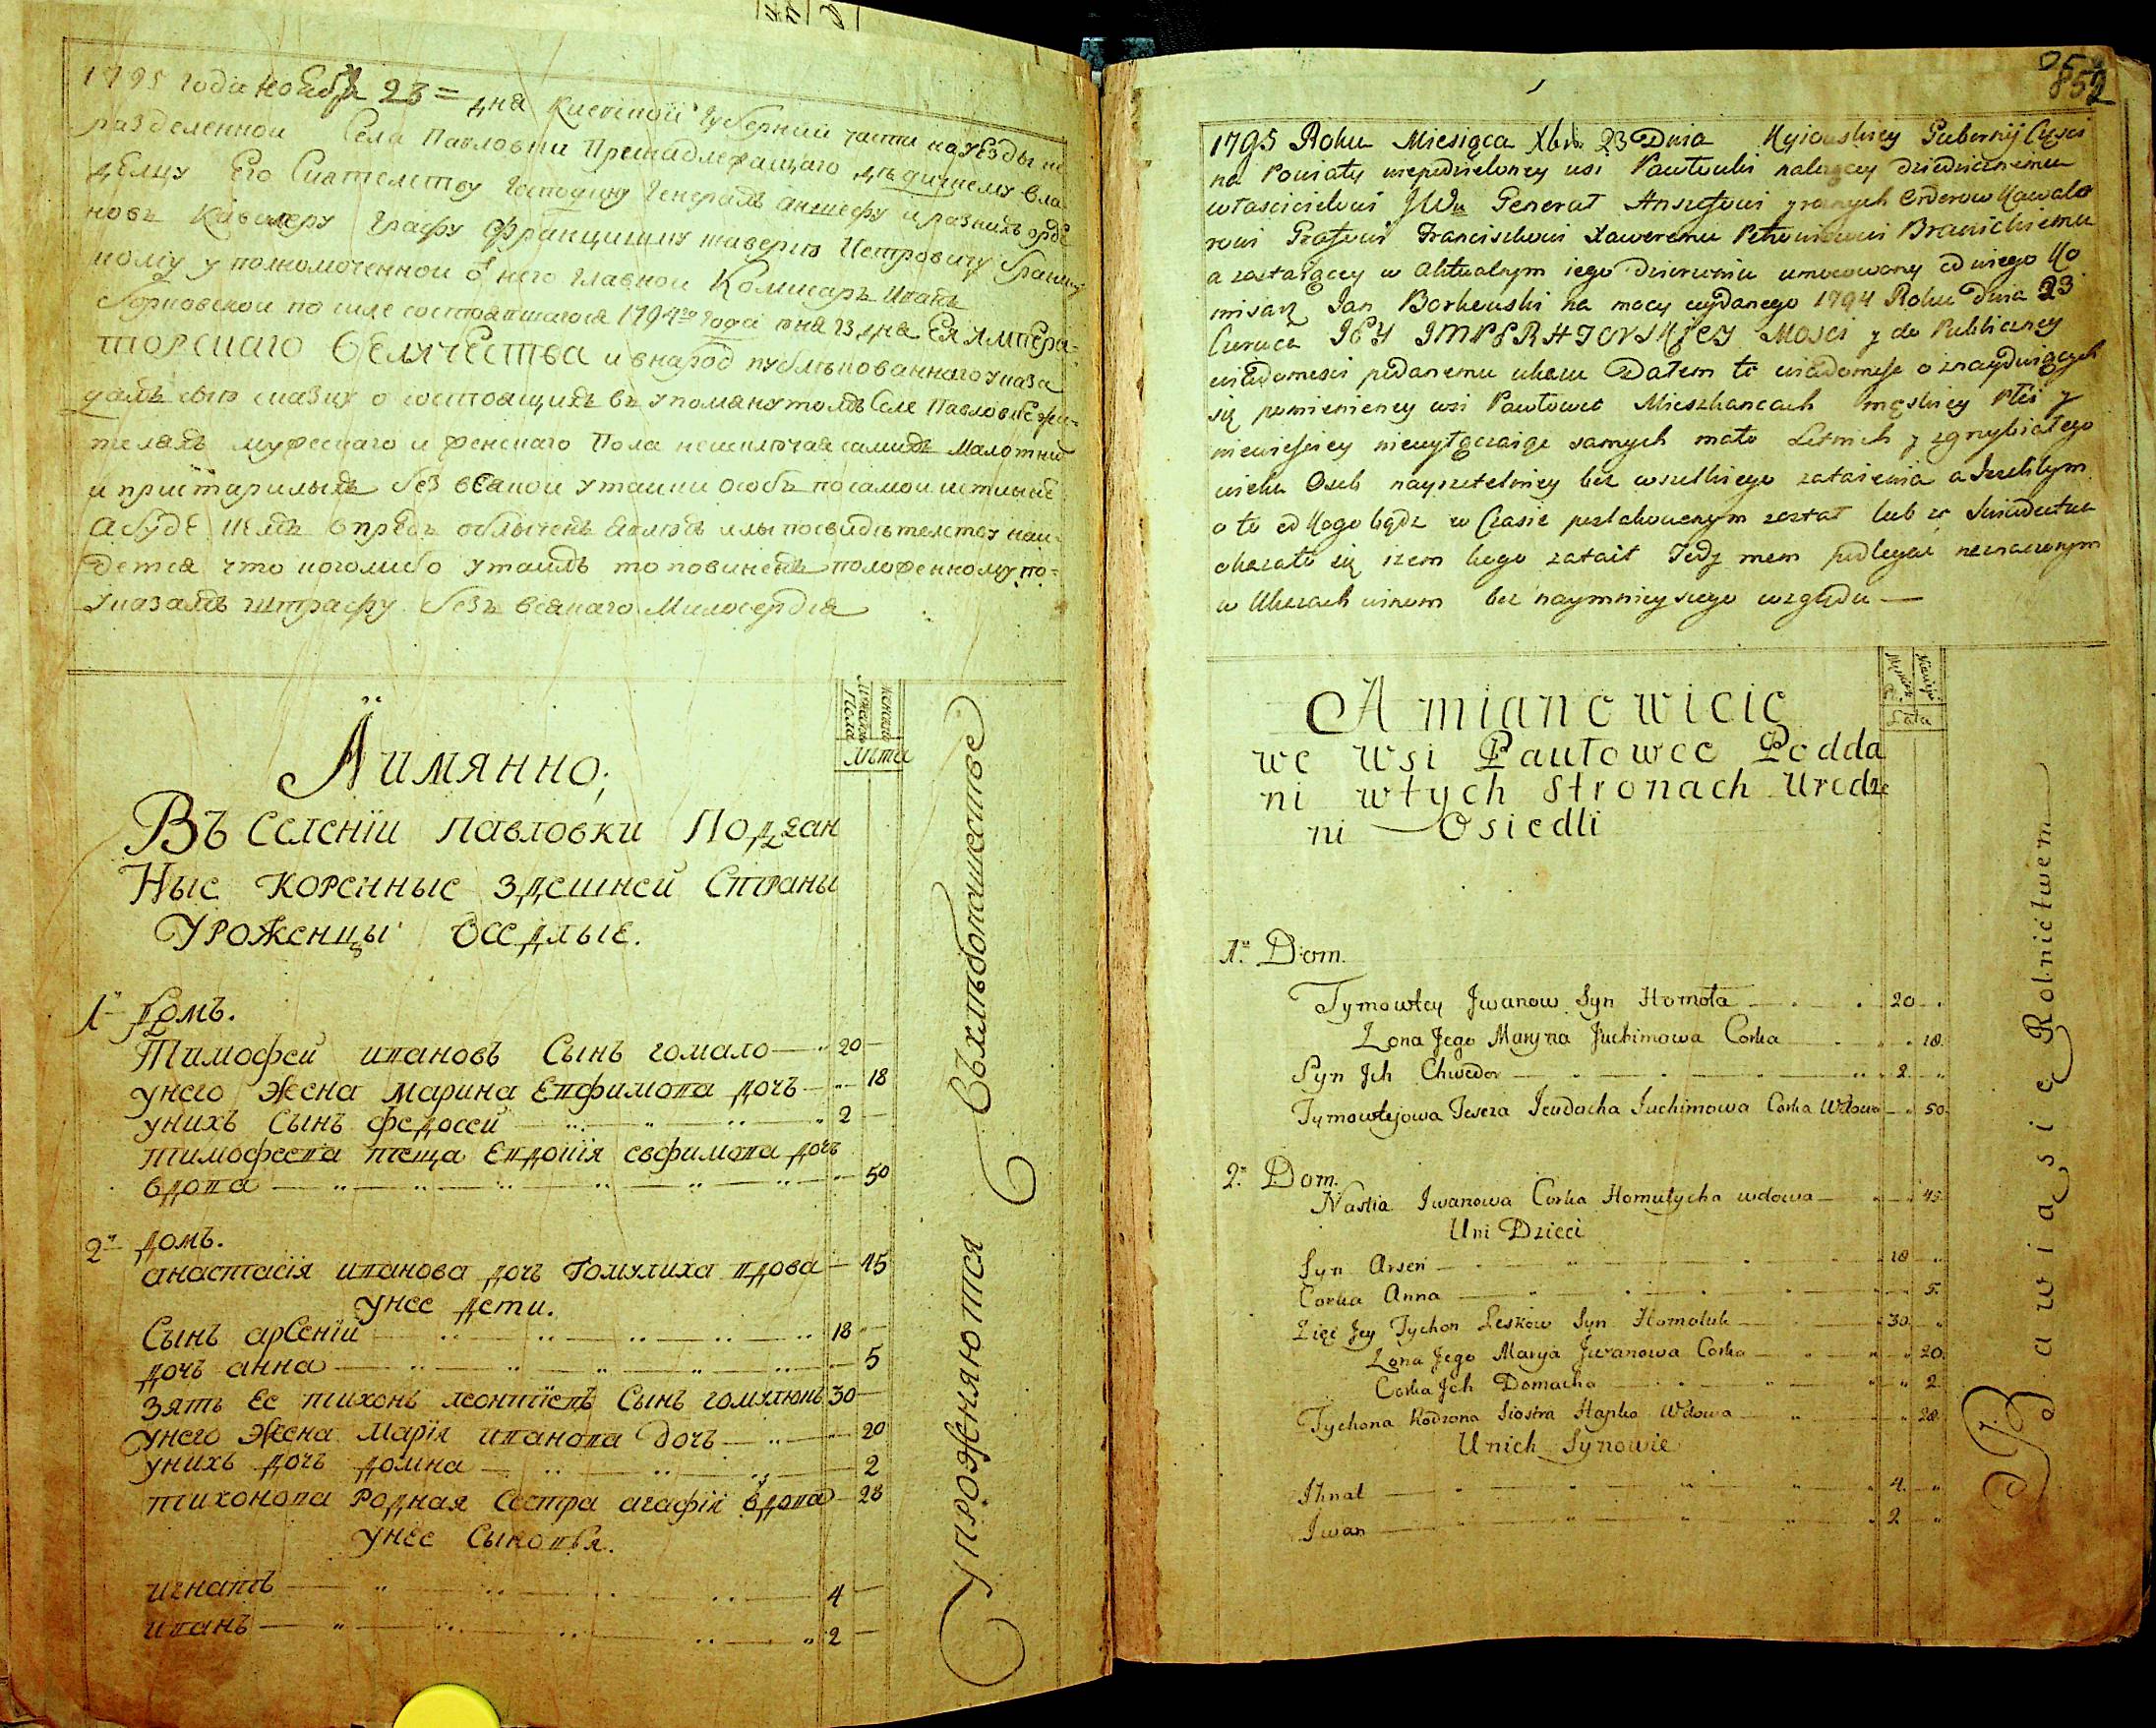 1795 года ноября 23 = дня Киевской Губернии части на уезды не
разделенной Села Павловки Принадлежащаго дедичному вла
делцу Его Сиятелству Господину Генералъ аншефу и разныхъ орде
новъ Кавалеру Графу Францишку
полку уполномоченной от него главной Комисаръ Иванъ
Борковской по силе состоявшагося 1794го года июня 23 дня Ея Импера-
торскаго Величества и внарод публикованнаго указа
даю сию сказку о состоящихъ въ упомянутомъ селе Павловке жи-
теляхъ мужескаго и женскаго Пола неисключая самихъ малолетнихъ
и престарелыхъ без всякой утайки особъ по самой истинне
а буде кемъ впредь
дется что кого либо утаилъ то повиненъ положенному по-
указамъ штрафу безъ всякаго Милосердія
Аимянно;
Въ Селеніи Павловки Поддан
Ные коренные здешней Страны
Уроженцы Оседлые.
мужеска женска
Пола
лѣта
1й домъ.
Тимофей ивановъ Сынъ гомало — 20 —
унего Жена марина Евфимова дочъ — 18
унихъ Сынъ федосей 2 —
тимофеева теща Евдокія евфимова дочъ
вдова — 50
2й домъ.
анастасія иванова дочъ Гомулиха вдова — 45
унее дети.
Сынъ арСеній 18 —
дочъ анна — 5
зять ее тихонъ леонтіевъ Сынъ гомулюкъ 30 —
унего Жена Марія иванова дочъ — 20
унихъ дочъ домна — 2
тихонова Родная Сестра агафія вдова — 28
унее Сыновья.
игнатъ 4 —
иванъ 2 —
Упрожняются Въхлѣбопашестве
852
1795 Roku Miesiąca Xbra 23 Dnia Kyiowskiey Gubernij Części
na Powiaty niepodzieloney wsi Pawłowki należącey dziedzicznemu
właścicielowi JWu Generał Anszefowi y roznych Orderow Kawale
rowi Grafowi Franciszkowi Xaweremu Petrowiczowi Branickiemu
a zostaiącey w aktualnym iego dzierżeniu umocowany od niego Ko
misarz Jan Borkowski na mocy wydanego 1794 Roku Dnia 23
Czerwca JEY IMPERATORSKIEY Mości y do Publiczney
wiadomości podanemu ukazu Datem tę wiadomość o znayduiących
się pomienioney wsi Pawłowce Mieszkancach męskiey Płci y
niewieściey niewyłączaiąc samych mało Letnich y zgrzybiałego
wieku Osob nayrzetelniey bez wszelkiego zataienia a Jeżeliбym
o to od Kogo bądź w Czasie poszlakowanym został lub ze Swiadectwa
okazało się iżem kogo zataił Tedy mam podlegać naznaczonym
w Ukazach winom bez naymnieyszego względu —
A mianowicie
we wsi Pawłowce Podda
ni wtych Stronach Urodze
ni — Osiedli
Lata
1o. Dom.
Tymowtey Jwanow Syn Homoła — 20
Żona Jego Maryna Juchimowa Corka — 18.
Syn Jch Chwedor — 2.
Tymowtejowa Teszcza Jewdocha Juchimowa Corka Wdowa — 50.
2o. Dom.
Nastia Jwanowa Corka Homulycha wdowa — 45.
Uni Dzieci
Syn Arseń — 18
Corka Anna — 5.
Zięć Jey Tychon Leskow Syn Homoluk — 30.
Żona Jego Marya Jwanowa Corka — 20.
Corka Jch Domacha — 2
Tychona Rodzona Siostra Hapka Wdowa — 28.
Unich Synowie
Jhnat — 4.
Jwan — 2
Bawią się Rolnictwem